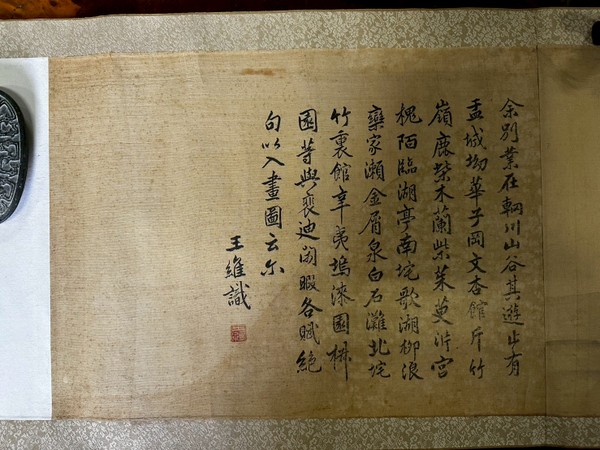 余別業在輞川山谷其遊止有
孟城坳華子岡文杏館斤竹
嶺鹿柴木蘭柴茱萸沜宮
槐陌臨湖亭南垞歌湖柳浪
欒家瀨金屑泉白石灘北垞
竹裏館辛夷塢漆園椒
園等與裴迪閒暇各賦絕
句以入畫圖云尔
王維識